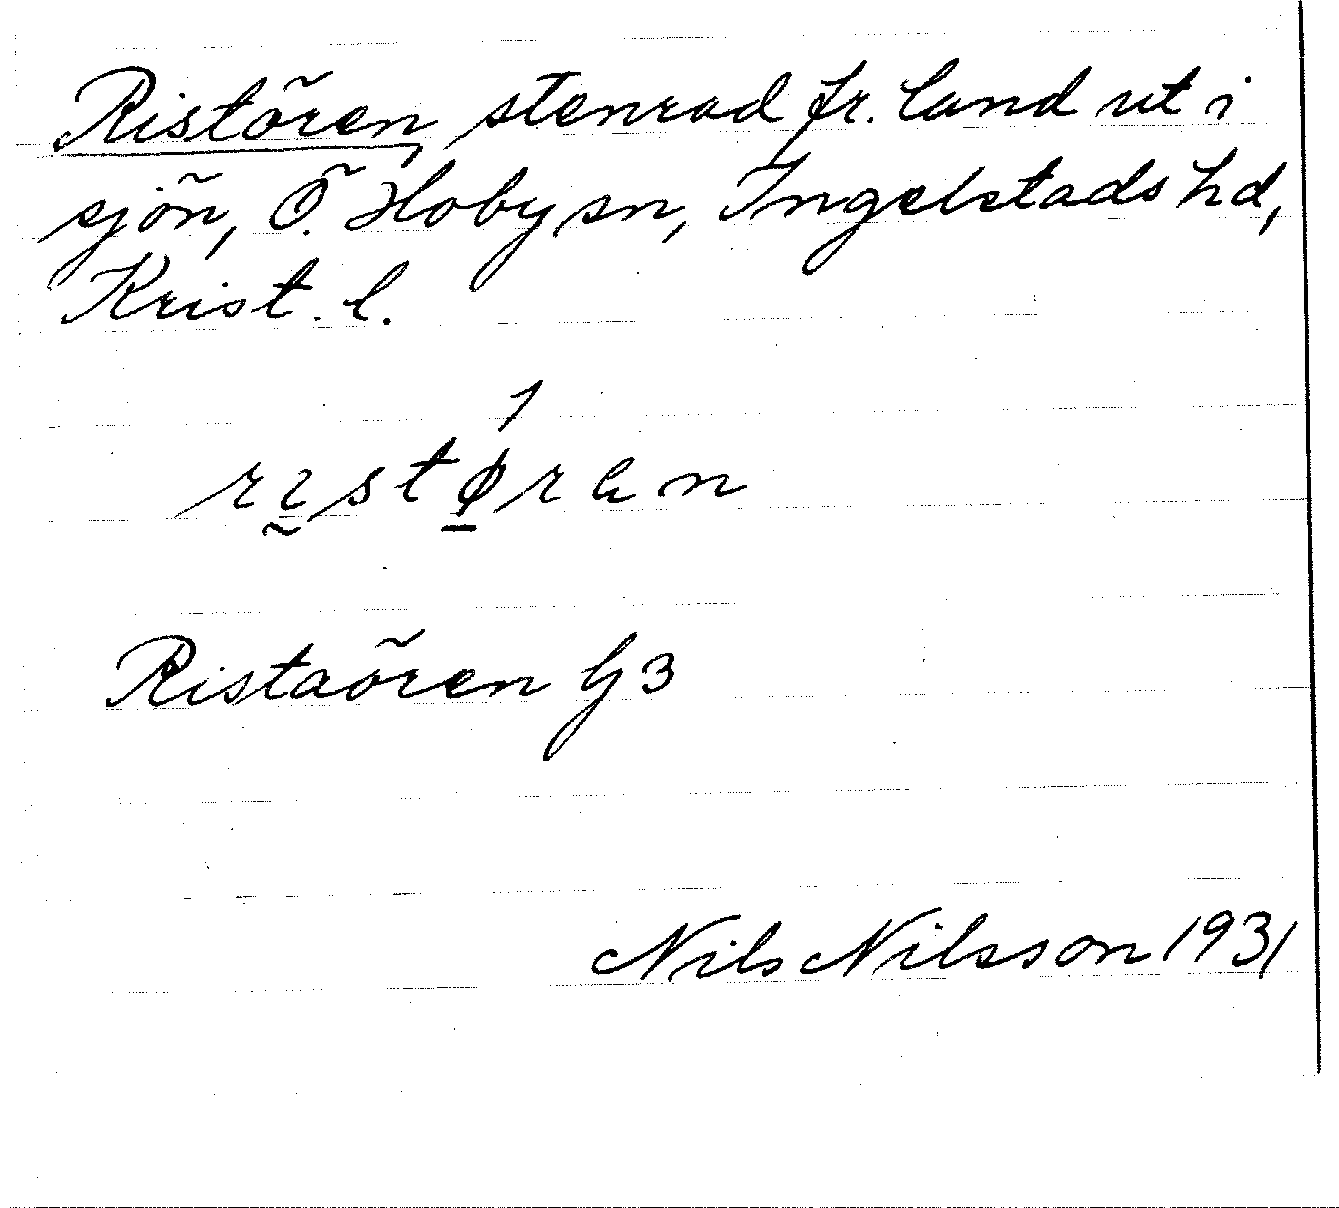 Ristören, stenrad fr. land ut i
sjön, Ö. Hoby sn, Ingelstads hd,
Krist. l.
1
rɪstøran
Ristaören G3
Nils Nilsson 1931